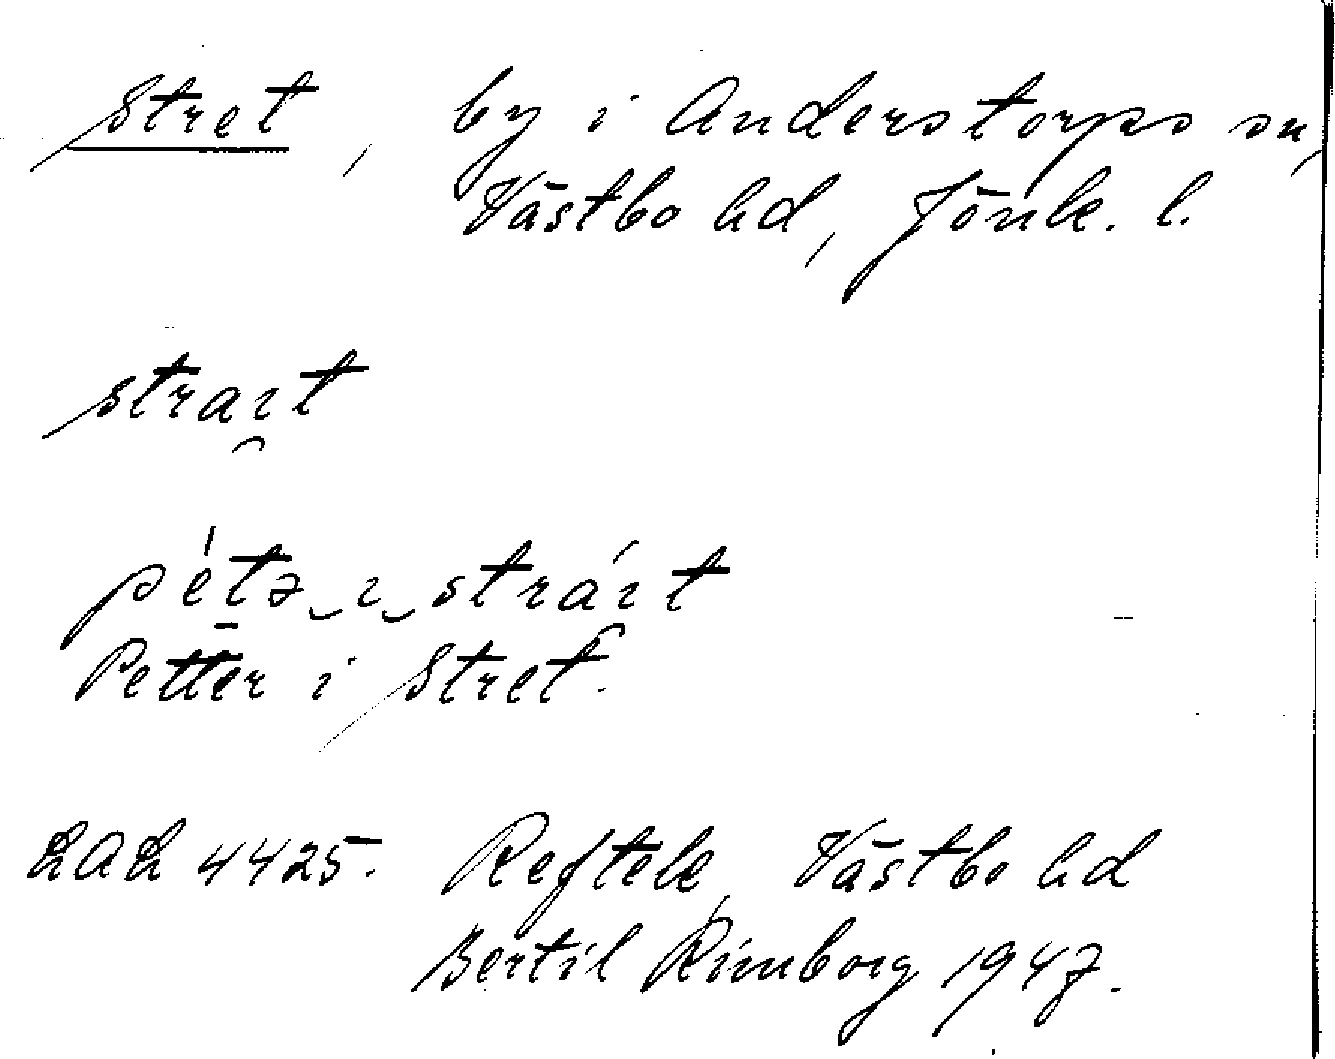 Stret, by i Anderstorps sn,
Västbo hd, Jönk. l.
straıt
pétə ı stráıt
Petter i Stret.
LAL 4425. Reftele, Västbo hd
Bertil Rimborg 1947.